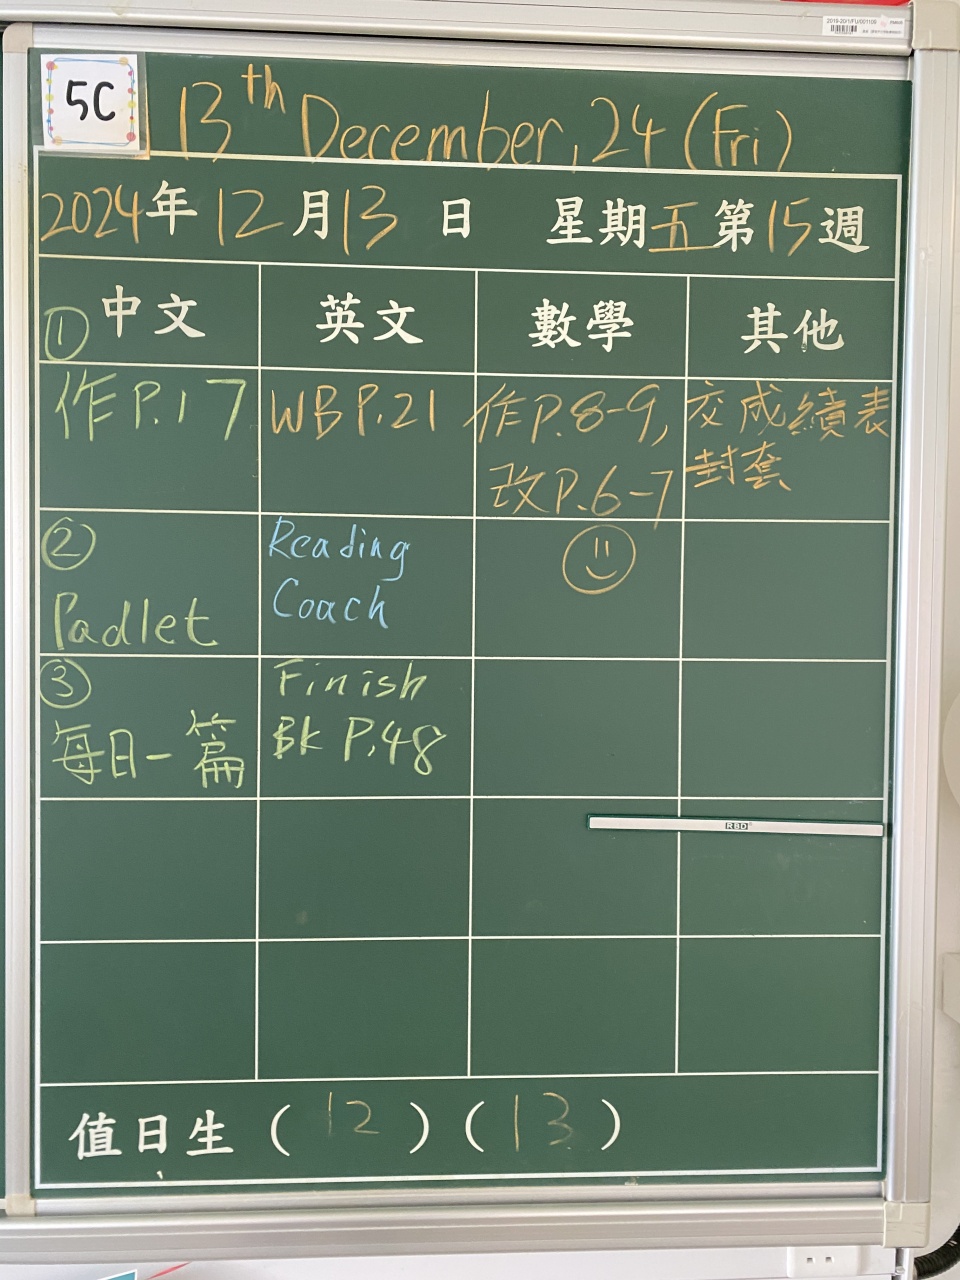 5C
13th December, 24 (Fri)
2024年 12月13日 星期五第15週
中文 英文 數學 其他
①
作P.17
WB P.21
作P.8-9,
改P.6-7
交成績表
封套
②
Padlet
Reading
Coach
③
每日一篇
Finish
Bk P.48
RSD
值日生 ( 12 ) ( 13 )